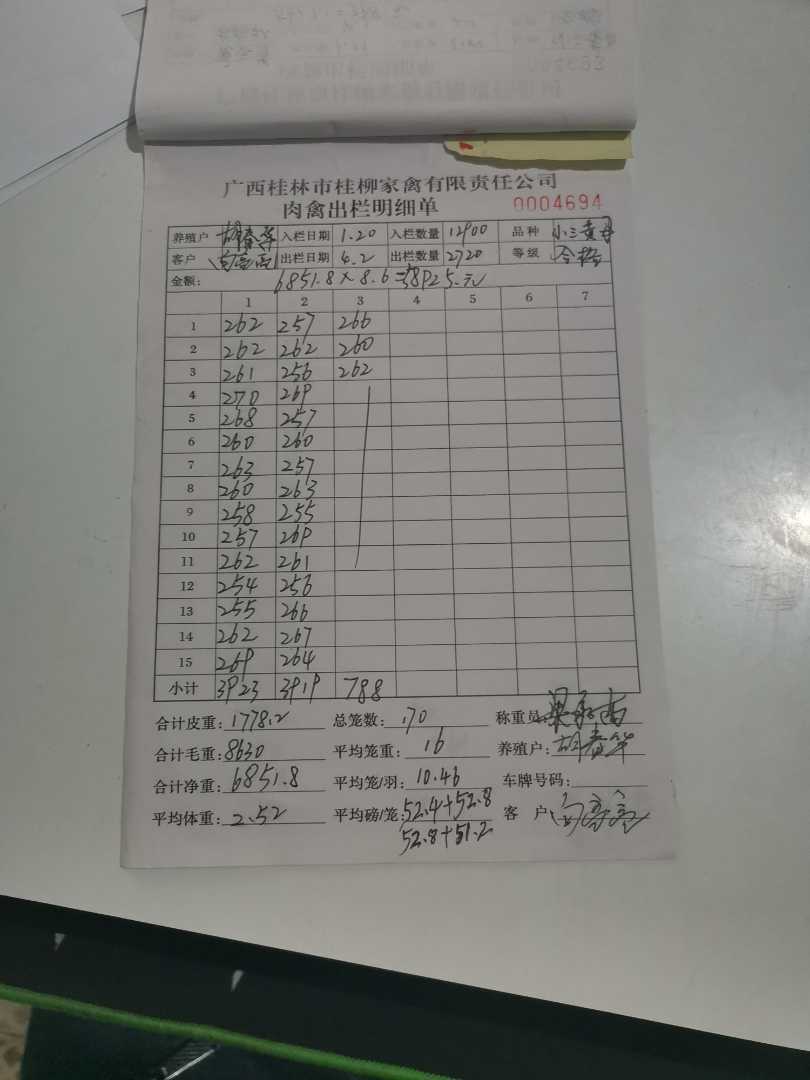 广西桂林市桂柳家禽有限责任公司
肉禽出栏明细单 0004694
养殖户 胡春华 入栏日期 1.20 入栏数量 12900 品种 小三黄母
客户 出栏日期 4.2 出栏数量 2720 等级 合格
金额: 6851.8×8.6=58925.元
1 2 3 4 5 6 7
1 262 257 266
2 262 262 260
3 261 256 262
4 270 269
5 268 257
6 260 260
7 263 257
8 260 263
9 258 255
10 257 269
11 262 261
12 254 256
13 255 266
14 262 267
15 269 264
小计 3923 3919 788
合计皮重: 1778.2 总笼数: 170 称重员:
合计毛重: 8630 平均笼重: 16 养殖户: 胡春华
合计净重: 6851.8 平均笼/羽: 10.46 车牌号码:
平均体重: 2.52 平均磅/笼: 52.4+52.8 客户:
52.8+51.2